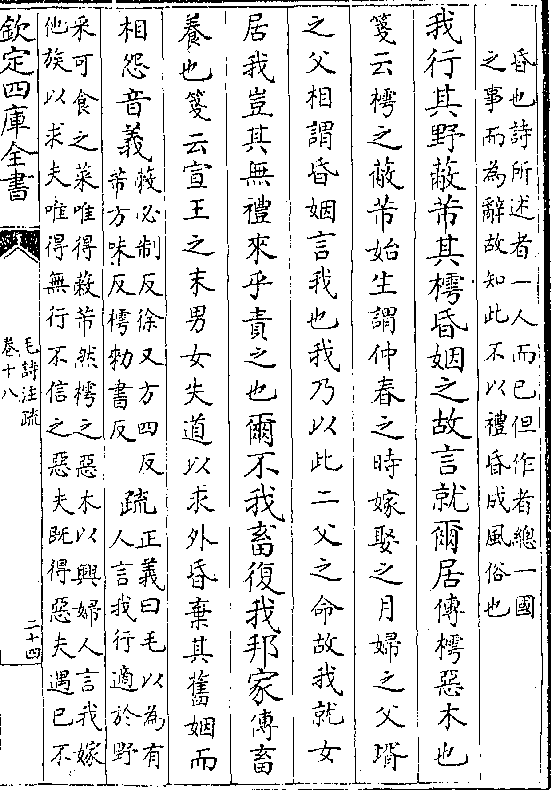 昏也詩所述者一人而已但作者總一國
之事而為辭故知此不以禮昏成風俗也
我行其野蔽芾其樗昏姻之故言就爾居傳樗惡木也
箋云樗之蔽芾始生謂仲春之時嫁娶之月婦之父壻
之父相謂昏姻言我也我乃以此二父之命故我就女
居我豈其無禮來乎責之也爾不我畜復我邦家傳畜
養也箋云宣王之末男女失道以求外昏棄其舊姻而
相怨音義蔽必制反徐又方四反
芾方味反樗勑書反疏正義曰毛以為有
人言我行適於野
采可食之菜唯得蔽芾然樗之惡木以興婦人言我嫁
他族以求夫唯得無行不信之惡夫既得惡夫遇已不
欽定四庫全書
毛詩注疏
卷十八
二十四